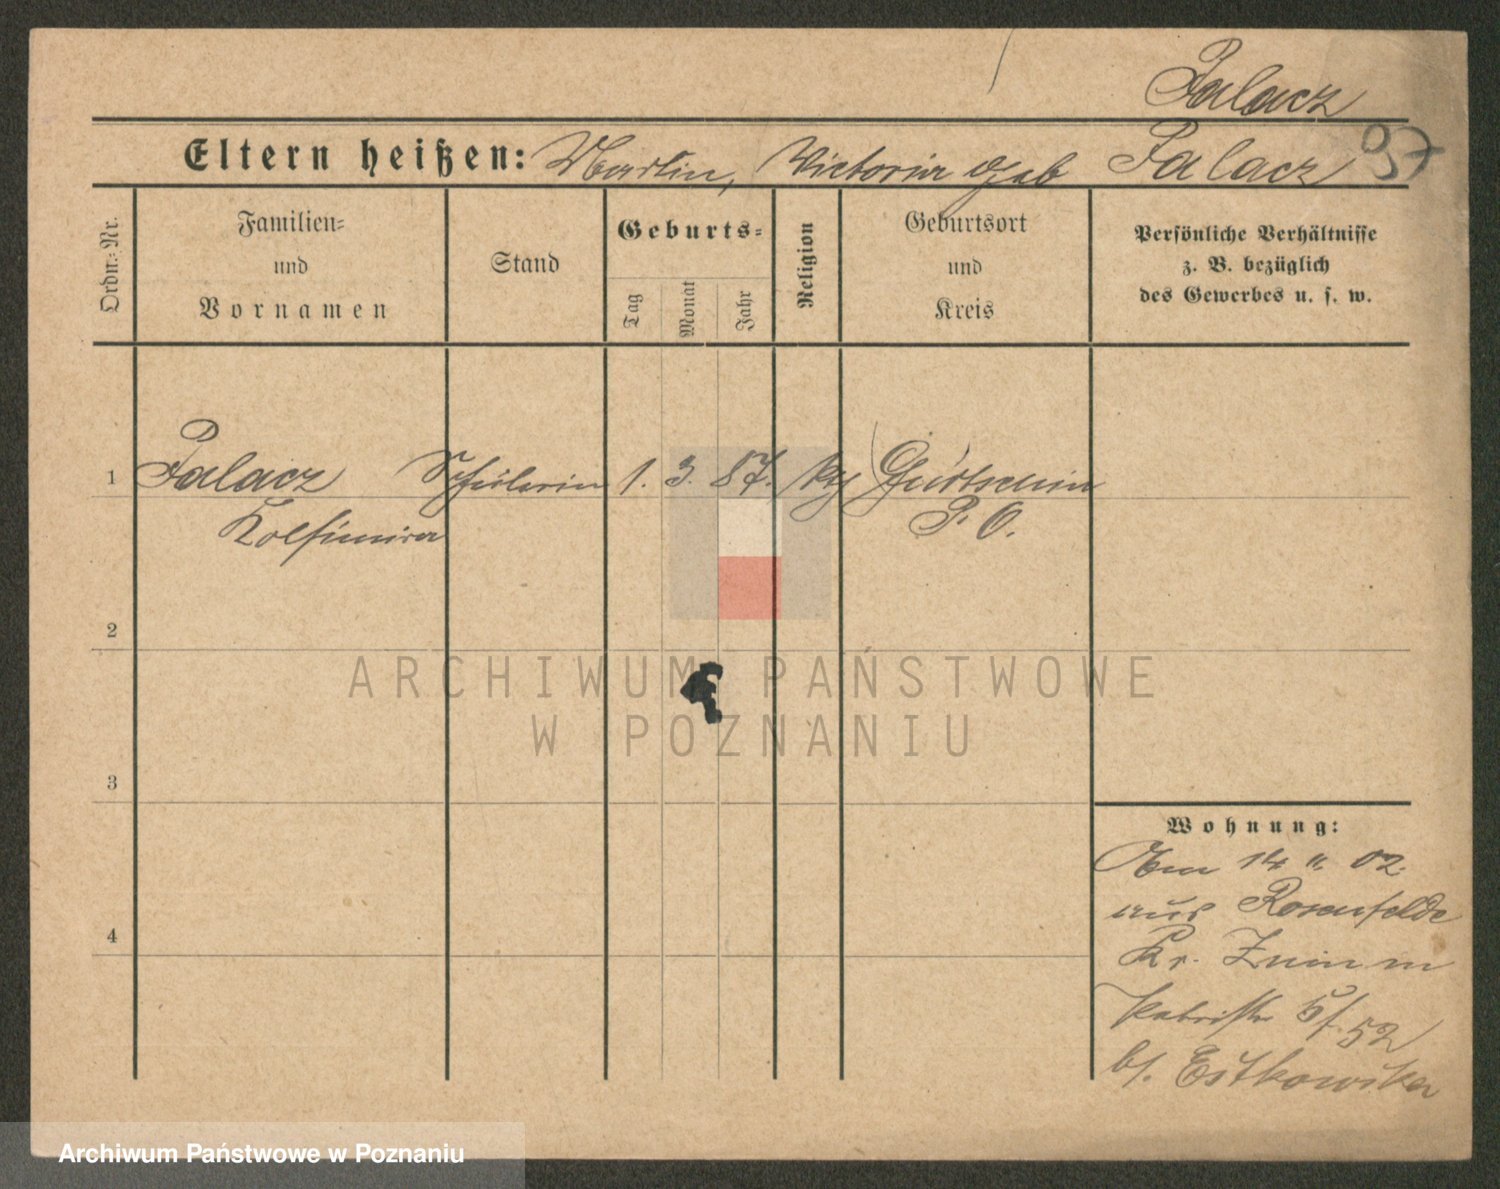 Palacz
Eltern heißen: Martin, Victoria geb Palacz
97
Ordn.-Nr.
Familien-
und
Vornamen
Stand
Geburts-
Tag
Monat
Jahr
Religion
Geburtsort
und
Kreis
Persönliche Verhältnisse
z. B. bezüglich
des Gewerbes u. s. w.
1 Palacz Schülerin 1. 3. 87. kth
P. O.
2
3
4
ARCHIWUM PAŃSTWOWE
W POZNANIU
Wohnung:
Am 14 11. 02.
aus Rosenfelde
Kr. Znin in
5/52
b/. Estkowska
Archiwum Państwowe w Poznaniu